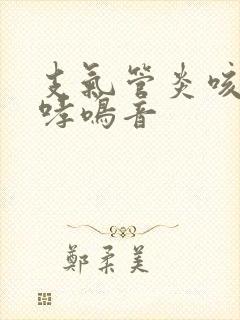 支氣管炎咳
哮鳴音
鄭柔美